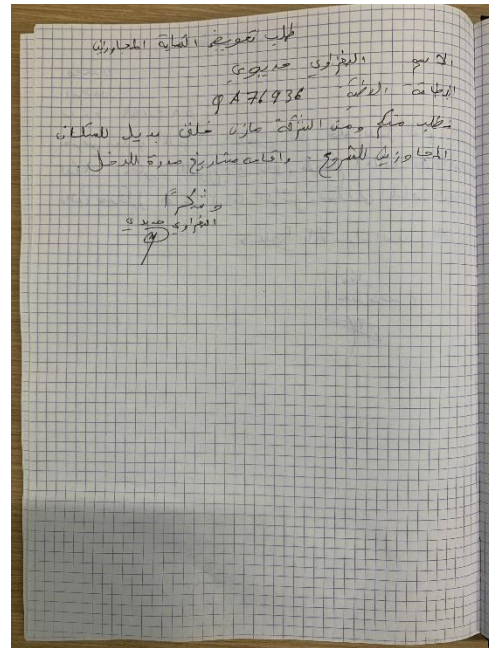 طلب تعويض الساكنة المجاورين
الاسم البغراوي
البطاقة الوطنية: QA76936
نطلب منكم ومن الشركة مازن خلق بديل للسكان
المجاورين للمشروع. واقامت مشاريع مدرة للدخل.
وشكراً
البغراوي